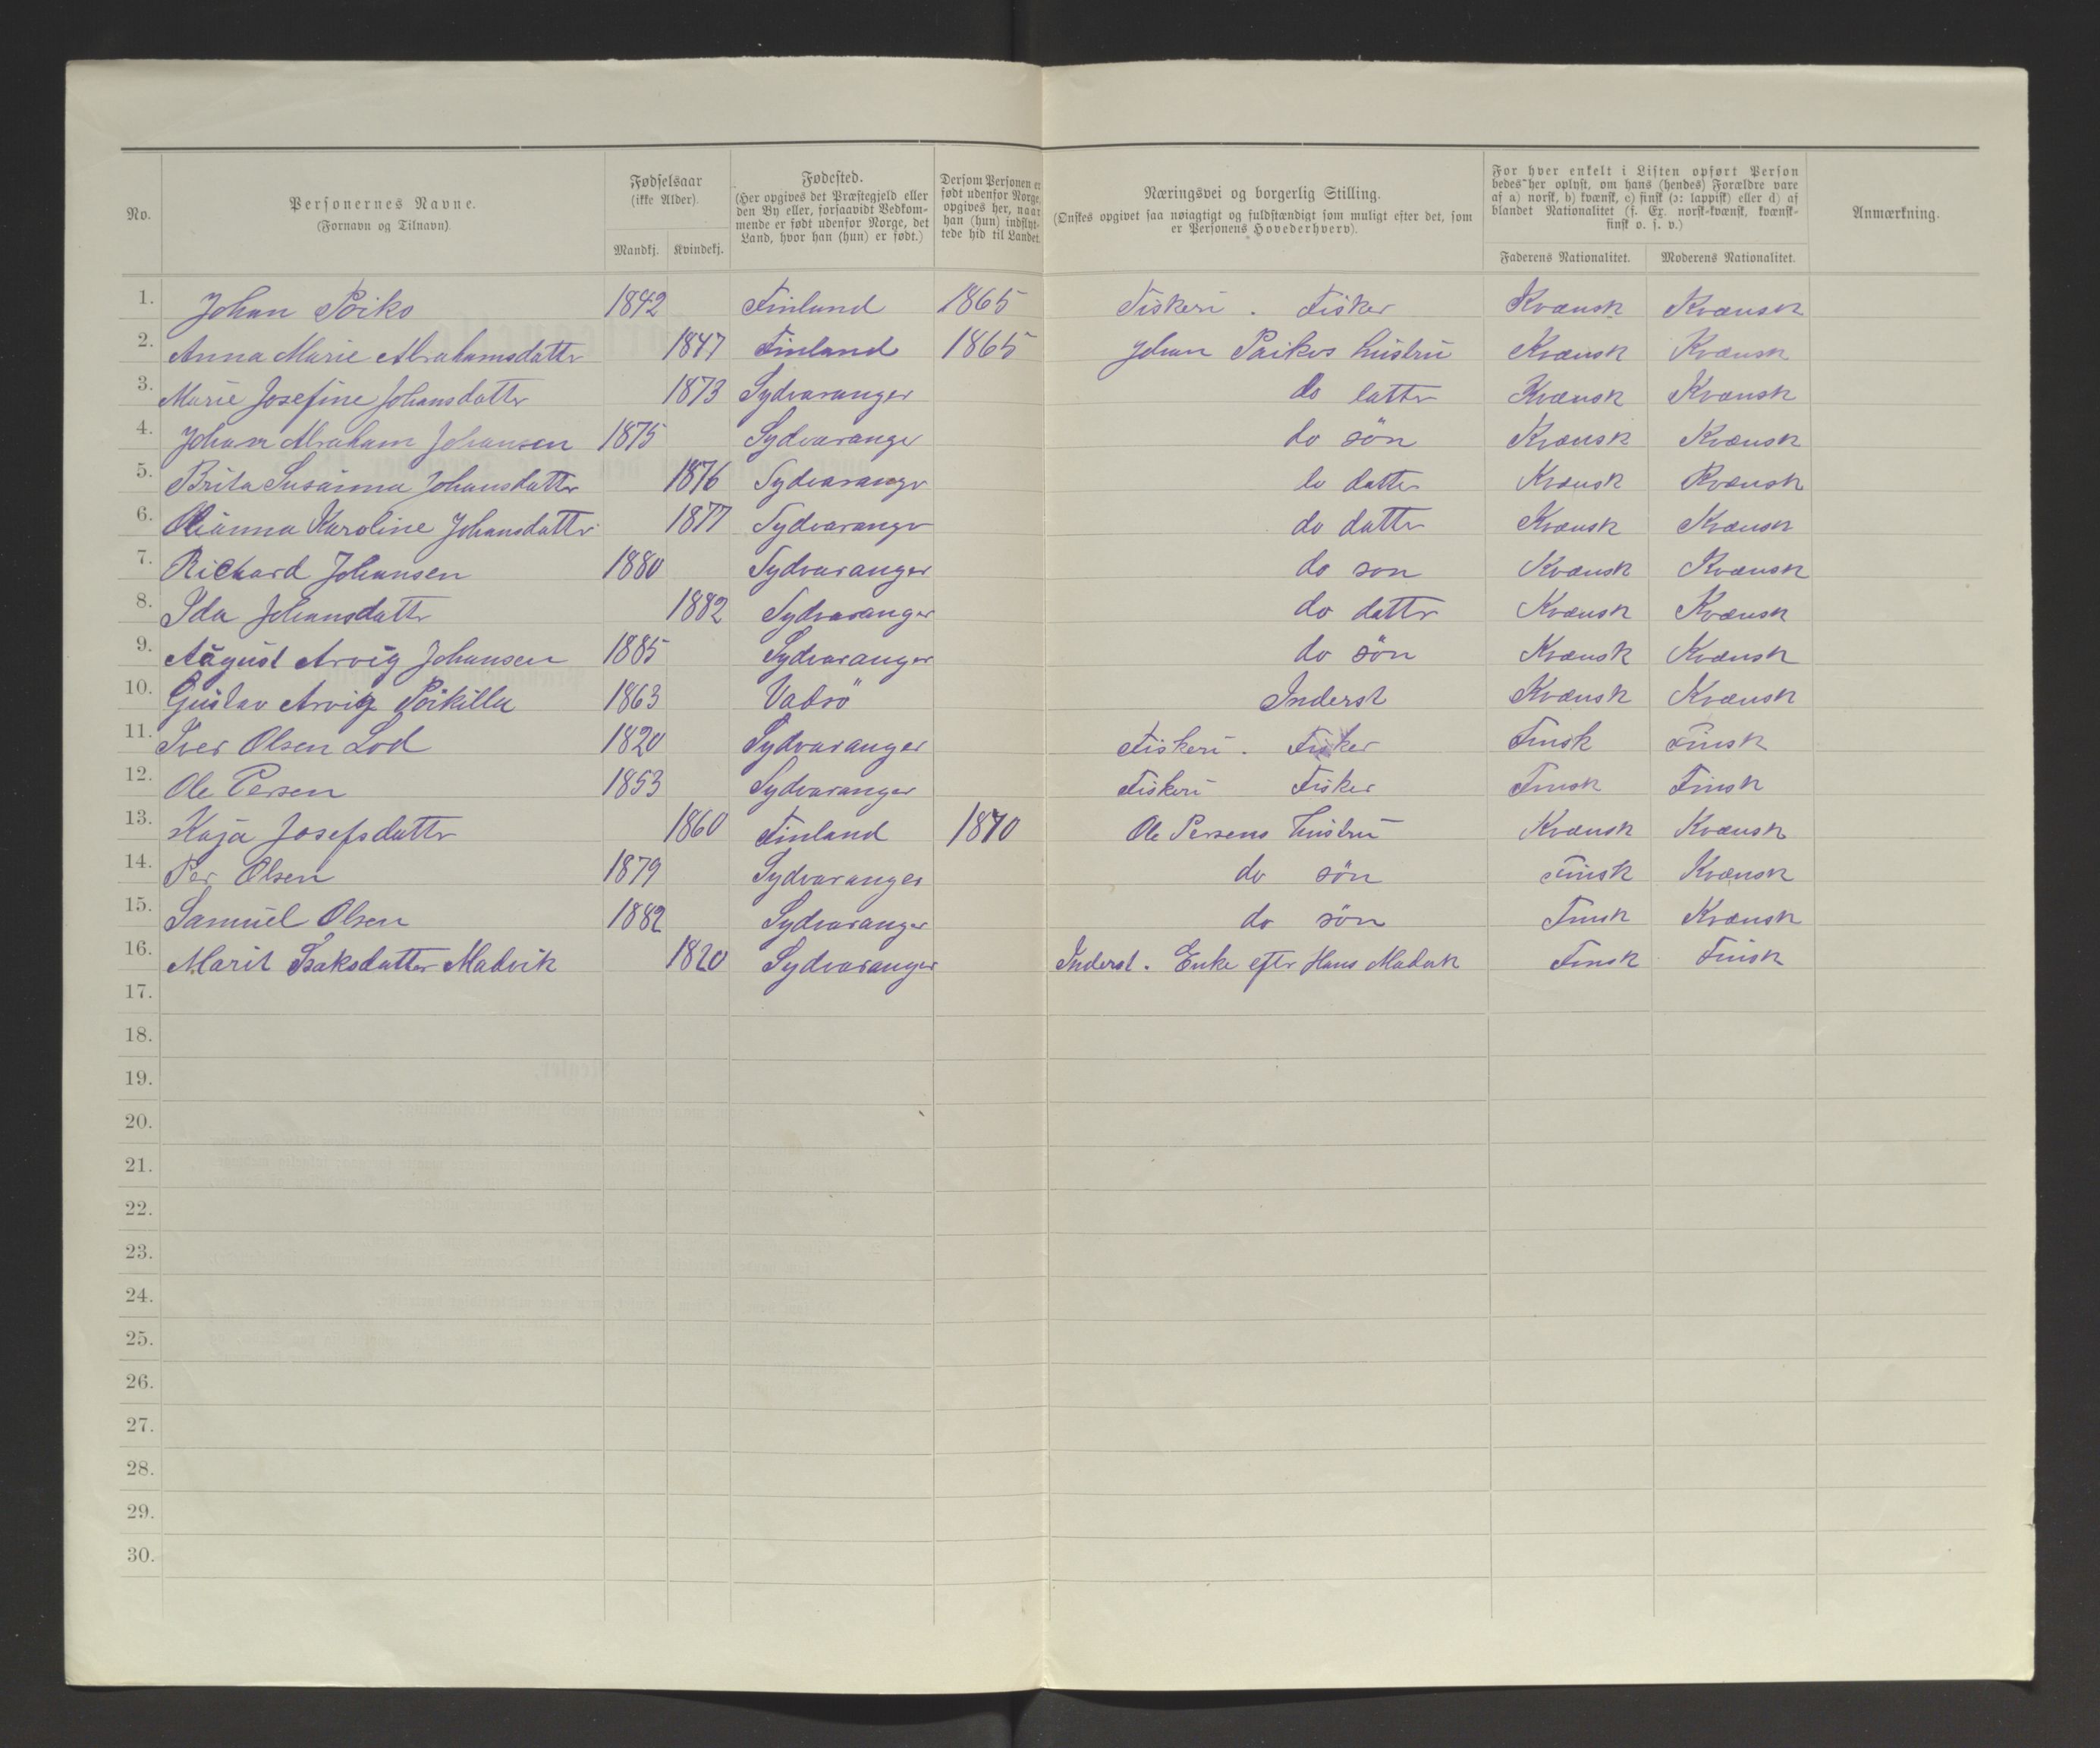 No.
Personernes Navne.
(Fornavn og Tilnavn).
Fødselsaar
(ikke Alder).
Mandkj. Kvindekj.
Fødested.
(Her opgives det Præstegjeld eller
den By eller, forsaavidt Vedkom-
mende er født udenfor Norge, det
Land, hvor han (hun) er født.)
Dersom Personen er
født udenfor Norge,
opgives her, naar
han (hun) indflyt-
tede hid til Landet.
Næringsvei og borgerlig Stilling.
(Ønskes opgivet saa nøiagtigt og fuldstændigt som muligt efter det, som
er Personens Hovederhverv).
For hver enkelt i Listen opført Person
bedes her oplyst, om hans (hendes) Forældre vare
af a) norsk, b) kvænsk, c) finsk (ɔ: lappisk) eller d) af
blandet Nationalitet (f. Ex. norsk-kvænsk, kvænsk-
finsk o. s. v.)
Faderens Nationalitet. Moderens Nationalitet.
Anmærkning.
1. Johan Poiko 1842 Finland 1865 Fiskeri . Fisker Kvænsk Kvænsk
2. Anna Marie Abrahamsdatter 1847 Finland 1865 Johan Poikos hustru Kvænsk Kvænsk
3. Marie Josefine Johansdatter 1873 Sydvaranger do datter Kvænsk Kvænsk
4. Johan Abraham Johansen 1875 Sydvaranger do søn Kvænsk Kvænsk
5. Brita Susanna Johansdatter 1876 Sydvaranger do datter Kvænsk Kvænsk
6. Karoline Johansdatter 1877 Sydvaranger do datter Kvænsk Kvænsk
7. Richard Johansen 1880 Sydvaranger do son Kvænsk Kvænsk
8. Ida Johansdatter 1882 Sydvaranger do datter Kvænsk Kvænsk
9. August Arvig Johansen 1885 Sydvaranger do søn Kvænsk Kvænsk
10. Gustav Arvig Poikilla 1863 Vadsö Inderst Kvænsk Kvænsk
11. Iver Olsen Lod 1820 Sydvaranger Fiskeri . Fisker Finsk Finsk
12. Ole Persen 1853 Sydvaranger Fiskeri Fisker Finsk Finsk
13. Kaja Josefsdatter 1860 Finland 1870 Ole Persens hustru Kvænsk Kvænsk
14. Per Olsen 1879 Sydvaranger do søn Finsk Kvænsk
15. Samuel Olsen 1882 Sydvaranger do søn Finsk Kvænsk
16. Marit Isaksdatter Madvik 1820 Sydvaranger Inderst . Enke efter Hans Madvik Finsk Finsk
17.
18.
19.
20.
21.
22.
23.
24.
25.
26.
27.
28.
29.
30.